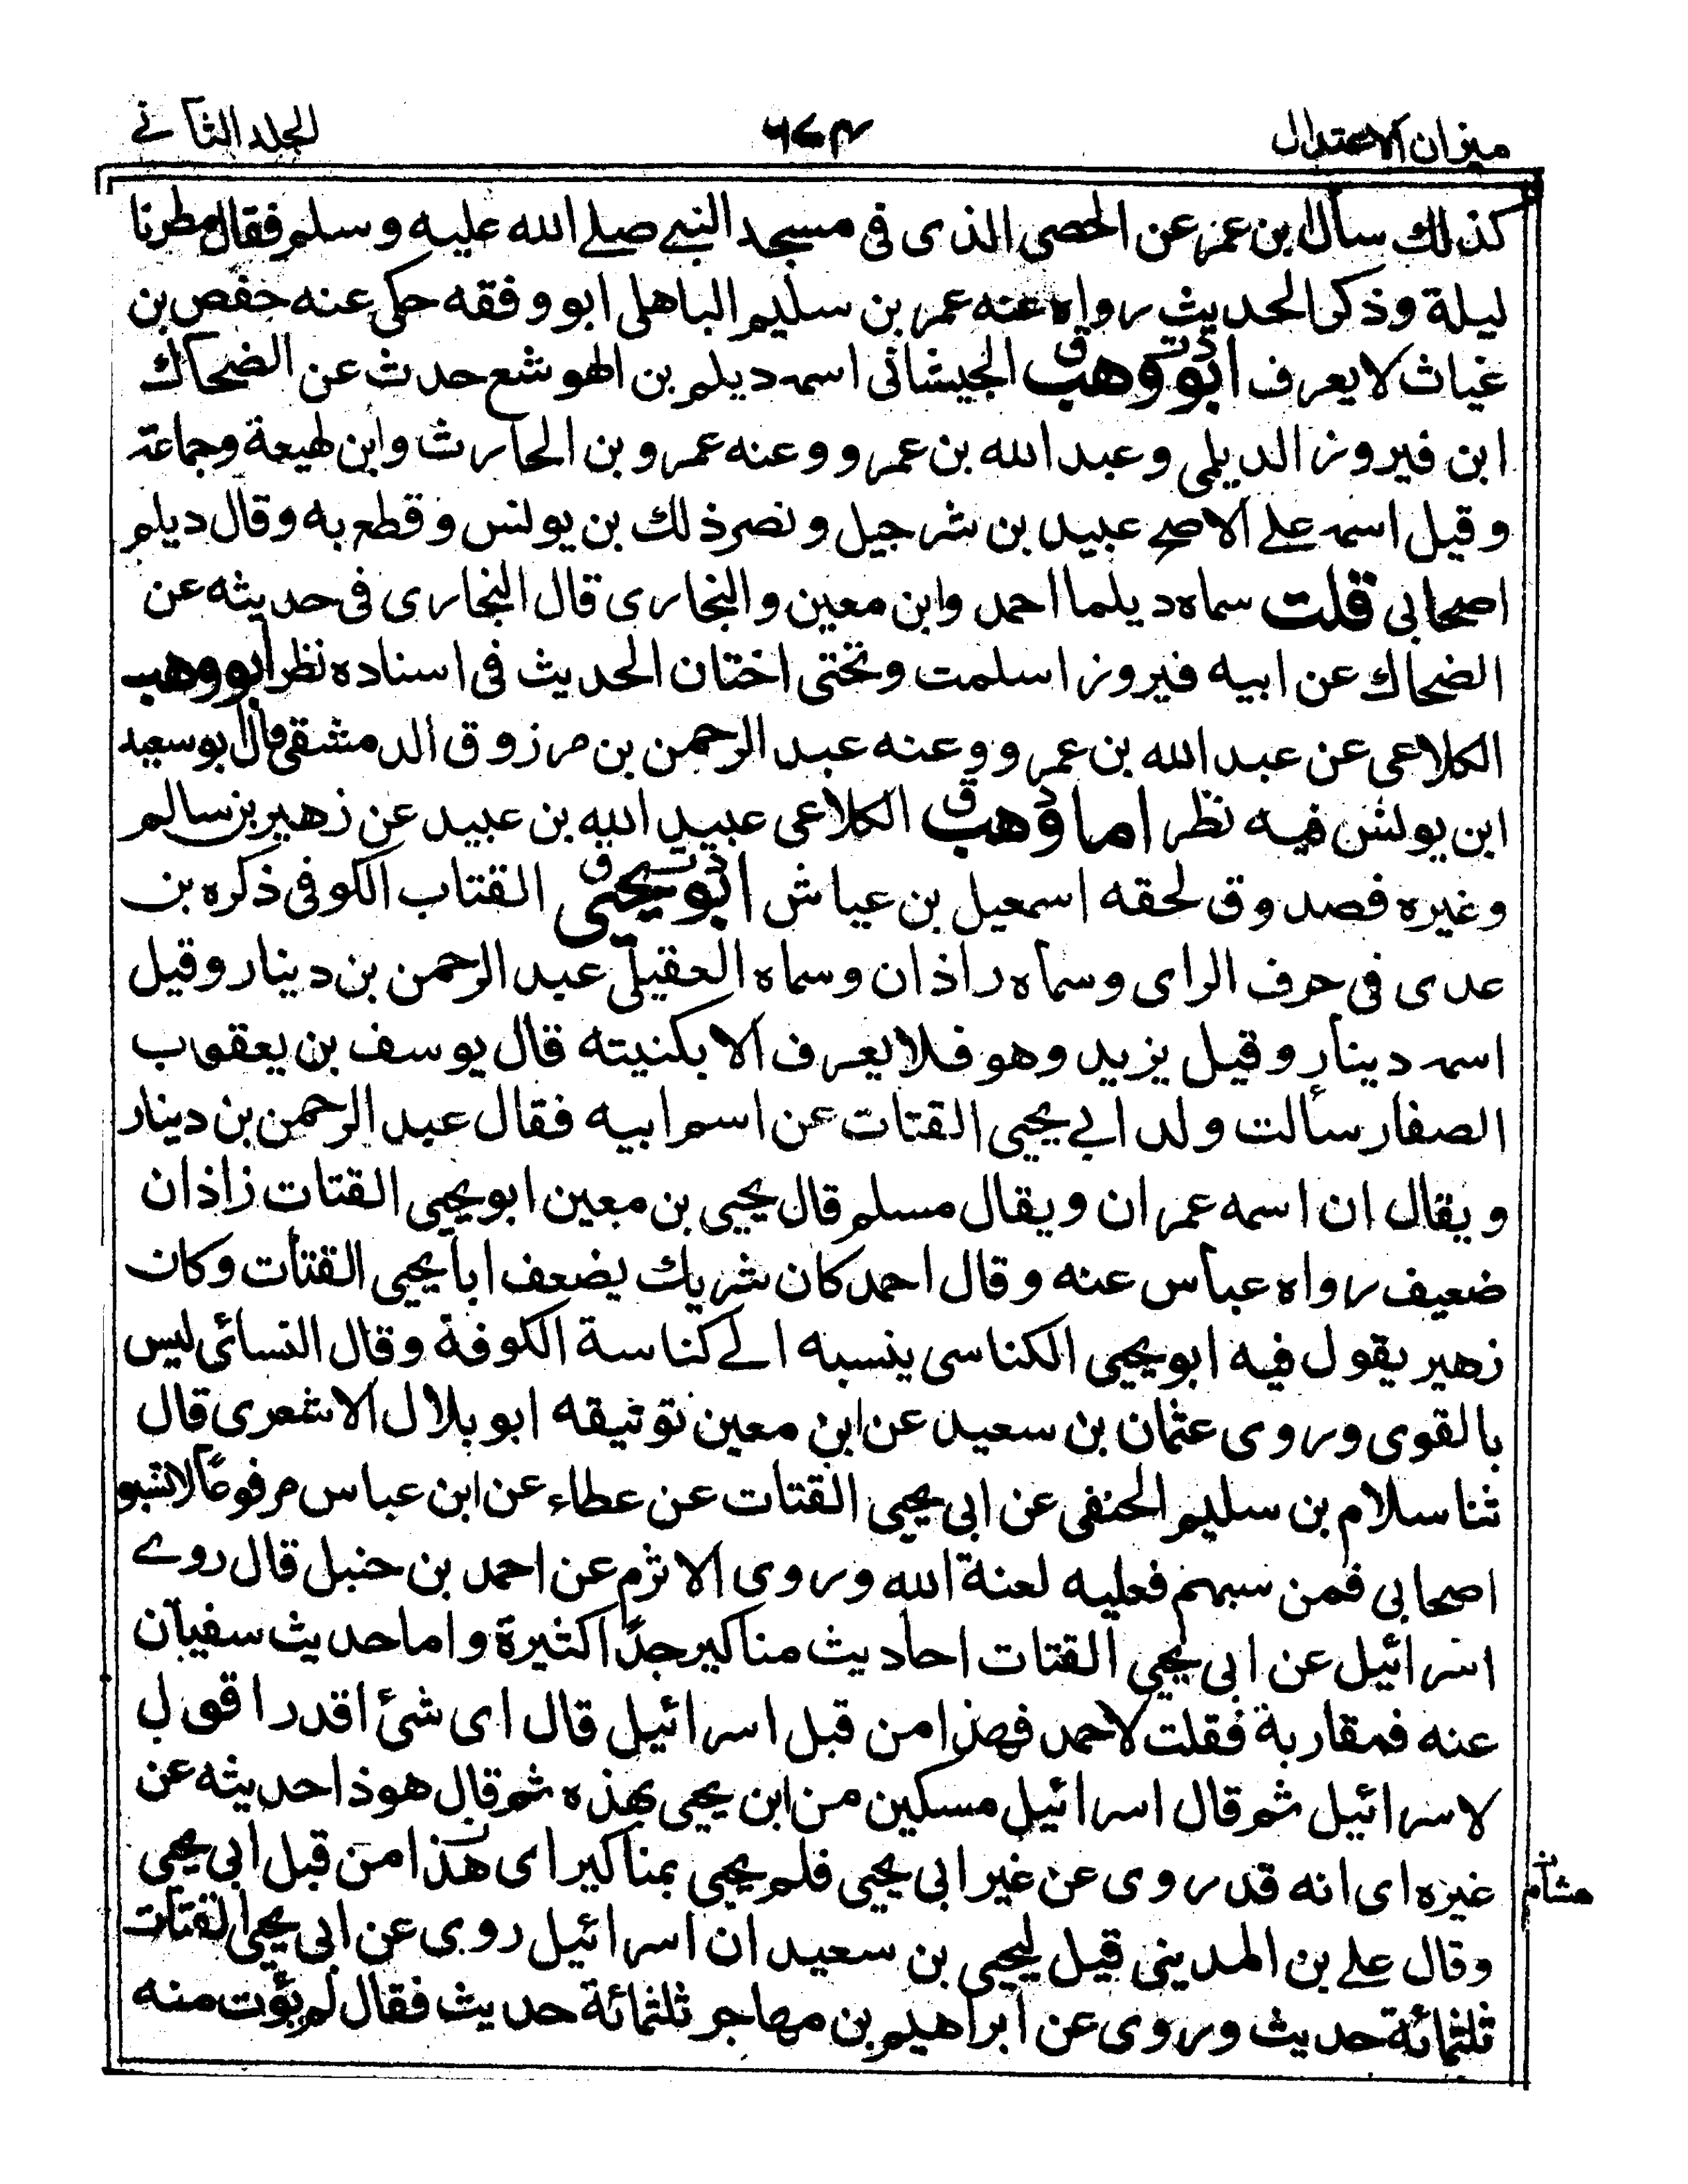 ميزان الاعتدال
٦٧٤
الجلد الثاني
كذلك سأل بن عمر عن الحصى الذى فى مسجد النبي صلے الله عليه وسلم فقال مطرنا
ليلة وذكر الحديث رواه عنه عمر بن سليم الباهلى ابو وفقه حكى عنه حفص بن
غياث لا يعرف ابو وهب الجيشانى اسمه ديلم بن الهوشع حدث عن الضحاك
ابن فيروز الديلمى وعبد الله بن عمرو وعنه عمرو بن الحارث وابن لهيعة وجماعة
وقيل اسمه علے الاصح عبيد بن شرجيل ونصر ذلك بن يونس وقطع به وقال ديلم
اصحابى قلت سماه ديلما احمد وابن معين والبخارى قال البخارى فى حديثه عن
الضحاك عن ابيه فيروز اسلمت وتحتى اختان الحديث فى اسناده نظر ابو وهب
الكلاعى عن عبد الله بن عمرو وعنه عبد الرحمن بن مرزوق الدمشقى قال ابو سعيد
ابن يونس فيه نظر اما وهب الكلاعى عبيد الله بن عبيد عن زهير بن سالم
وغيره فصدوق لحقه اسمعيل بن عياش ابو يحيى القتاب الكوفى ذكره بن
عدى فى حرف الراى وسماه راذان وسماه العقيلى عبد الرحمن بن دينار وقيل
اسمه دينار وقيل يزيد وهو فلا يعرف الا بكنيته قال يوسف بن يعقوب
الصفار سألت ولد ابي يحيى القتات عن اسم ابيه فقال عبد الرحمن بن دينار
ويقال ان اسمه عمران ويقال مسلم قال يحيى بن معين ابو يحيى القتات زاذان
ضعيف رواه عباس عنه وقال احمد كان شريك يضعف ابا يحيى القتات وكان
زهير يقول فيه ابو يحيى الكناسى ينسبه الے كناسة الكوفة وقال النسائى ليس
بالقوى وروى عثمان بن سعيد عن ابن معين توثيقه ابو بلال الاشعرى قال
ثنا سلام بن سليم الحنفى عن ابى يحيى القتات عن عطاء عن ابن عباس مرفوعا لا تسبو
اصحابى فمن سبهم فعليه لعنة الله وروى الاثرم عن احمد بن حنبل قال روے
اسرائيل عن ابى يحيى القتات احاديث مناكير جدًا كثيرة واما حديث سفيان
عنه فمقاربة فقلت لاحمد فهذا من قبل اسرائيل قال اى شئ اقدر اقول
لاسرائيل ثم قال اسرائيل مسكين من ابن يحيى بهذه ثم قال هوذا حديثه عن
غيره اى انه قد روى عن غير ابى يحيى فلم يحيى بمناكير اى هذا من قبل ابى يحيى
وقال علے بن المدينى قيل ليحيى بن سعيد ان اسرائيل روى عن ابى يحيى القتات
ثلثمائة حديث وروى عن ابراهيم بن مهاجر ثلثمائة حديث فقال لم يؤت منه